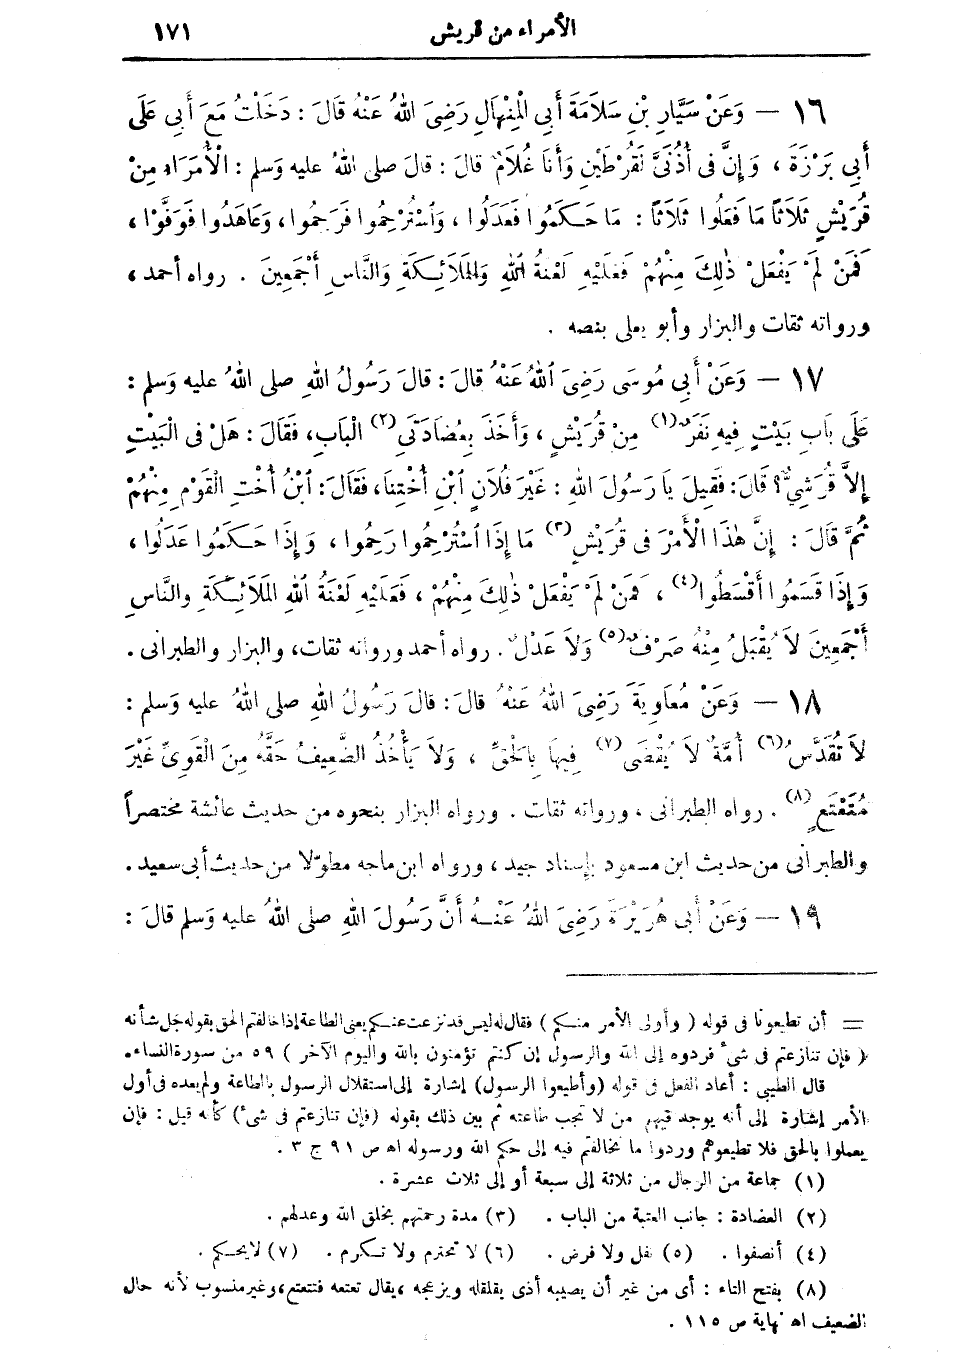 الأمراء من قريش ١٧١
١٦ — وَعَنْ سَيَّارِ بْنِ سَلاَمَةَ أَبِي الْمِنْهَالِ رَضِيَ اللهُ عَنْهُ قَالَ : دَخَلْتُ مَعَ أَبِي عَلَى
أَبِي بَرْزَةَ ، وَإِنَّ فِي أُذُنَيَّ لَقُرْطَيْنِ وَأَنَا غُلاَمٌ قالَ : قالَ صلى اللهُ عليه وَسلم : الْأُمَرَاءُ مِنْ
قُرَيْشٍ ثَلاَثًا مَا فَعَلُوا ثَلاَثًا : مَا حَكَمُوا فَعَدَلُوا ، وَاسْتُرْحِمُوا فَرَحِمُوا ، وَعَاهَدُوا فَوَفَوْا ،
فَمَنْ لَمْ يَفْعَلْ ذٰلِكَ مِنْهُمْ فَعَلَيْهِ لَعْنَةُ اللهِ وَالْمَلاَئِكَةِ وَالنَّاسِ أَجْمَعِينَ . رواه أحمد ،
ورواته ثقات والبزار وأبو يعلى بنصه .
١٧ — وَعَنْ أَبِي مُوسَى رَضِيَ اللهُ عَنْهُ قالَ : قالَ رَسُولُ اللهِ صلى اللهُ عليه وَسلم :
عَلَى بَابِ بَيْتٍ فِيهِ نَفَرٌ (١) مِنْ قُرَيْشٍ ، وَأَخَذَ بِعُضَادَتَيِ (٢) الْبَابِ ، فَقَالَ : هَلْ فِي الْبَيْتِ
إِلاَّ قُرَشِيٌّ؟ قَالَ : فَقِيلَ يَا رَسُولَ اللهِ : غَيْرَ فُلاَنٍ ابْنِ أُخْتِنَا ، فَقَالَ : ابْنُ أُخْتِ الْقَوْمِ مِنْهُمْ
ثُمَّ قَالَ : إِنَّ هٰذَا الْأَمْرَ فِي قُرَيْشٍ (٣) مَا إِذَا اسْتُرْحِمُوا رَحِمُوا ، وَإِذَا حَكَمُوا عَدَلُوا ،
وَإِذَا قَسَمُوا أَقْسَطُوا (٤) ، فَمَنْ لَمْ يَفْعَلْ ذٰلِكَ مِنْهُمْ ، فَعَلَيْهِ لَعْنَةُ اللهِ الْمَلاَئِكَةِ والنَّاسِ
أَجْمَعِينَ لاَ يُقْبَلُ مِنْهُ صَرْفٌ (٥) وَلاَ عَدْلٌ . رواه أحمد ورواته ثقات ، والبزار والطبرانى .
١٨ — وَعَنْ مُعَاوِيَةَ رَضِيَ اللهُ عَنْهُ قالَ : قالَ رَسُولُ اللهِ صلى اللهُ عليه وسلم :
لاَ تُقَدَّسُ (٦) أُمَّةٌ لاَ يُقْضَى (٧) فِيهَا بِالْحَقِّ ، وَلاَ يَأْخُذُ الضَّعِيفُ حَقَّهُ مِنَ الْقَوِيِّ غَيْرَ
مُتَعْتَعٍ (٨) . رواه الطبرانى ، ورواته ثقات . ورواه البزار بنحوه من حديث عائشة مختصراً
والطبرانى من حديث ابن مسعود بإسناد جيد ، ورواه ابن ماجه مطوّلا من حديث أبى سعيد .
١٩ — وَعَنْ أَبِي هُرَيْرَةَ رَضِيَ اللهُ عَنْهُ أَنَّ رَسُولَ اللهِ صلى اللهُ عليه وَسلم قالَ :
= أن تطيعونا فى قوله ( وأولى الأمر منكم ) فقال له ليس قد نزعت عنكم يعنى الطاعة إذا خالفتم الحق بقوله جل شأنه
( فإن تنازعتم فى شىء فردوه إلى الله والرسول إن كنتم تؤمنون بالله واليوم الآخر ) ٥٩ من سورة النساء .
قال الطيبى : أعاد الفعل فى قوله ( وأطيعوا الرسول ) إشارة إلى استقلال الرسول بالطاعة ولم يعده فى أول
الأمر إشارة إلى أنه يوجد فيهم من لا تجب طاعته ثم بين ذلك بقوله ( فإن تنازعتم فى شىء ) كأنه قيل : فإن
يعملوا بالحق فلا تطيعوهم وردوا ما تخالفتم فيه إلى حكم الله ورسوله اهـ ص ٩١ ج ٣ .
(١) جماعة من الرجال من ثلاثة إلى سبعة أو إلى ثلاث عشرة .
(٢) العضادة : جانب العتبة من الباب . (٣) مدة رحمتهم بخلق الله وعدلهم .
(٤) أنصفوا . (٥) نفل ولا فرض . (٦) لا تحترم ولا تكرم . (٧) لا يحكم .
(٨) بفتح التاء : أى من غير أن يصيبه أذى يقلقله ويزعجه ، يقال تعتعه فتتعتع ، وغير منسوب لأنه حال
الضعيف اهـ نهاية ص ١١٥ .